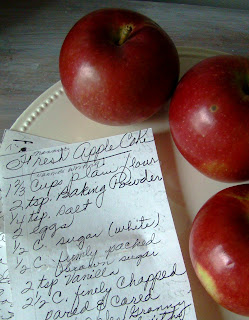 Fresh Apple Cake
1 2/3 Cups Plain Flour
2 tsp. Baking Powder
1/4 tsp. Salt
2 eggs
1/2 C. sugar (white)
1/2 C firmly packed
brown sugar
2 tsp Vanilla
2 1/2 C. finely Chapped
pared & Cored
Granny